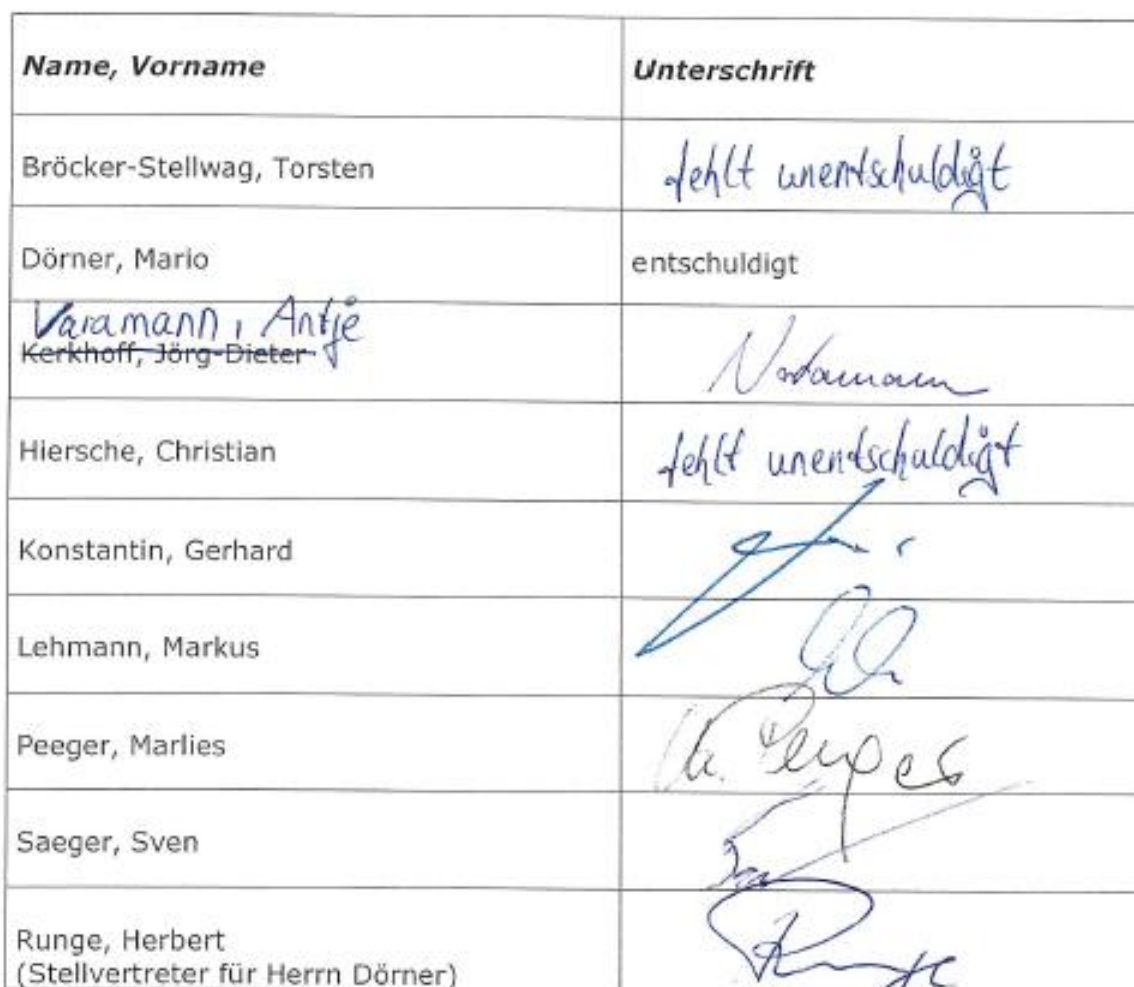 Name, Vorname Unterschrift
Bröcker-Stellwag, Torsten fehlt unentschuldigt
Dörner, Mario entschuldigt
Varamann, Antje
Kerkhoff, Jörg-Dieter
Hiersche, Christian fehlt unentschuldigt
Konstantin, Gerhard
Lehmann, Markus
Peeger, Marlies
Saeger, Sven
Runge, Herbert Runge
(Stellvertreter für Herrn Dörner)